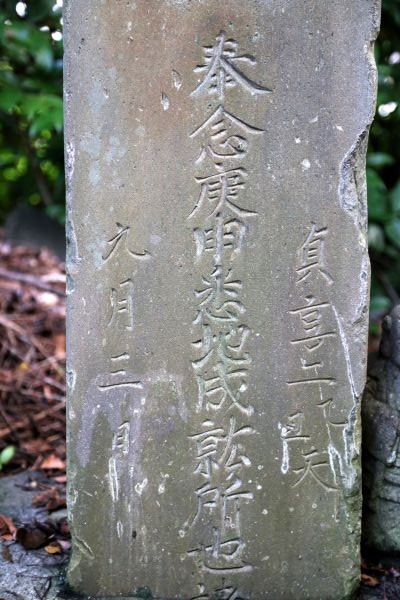 貞享二乙丑天
奉念庚申悉地成就所也
九月三日